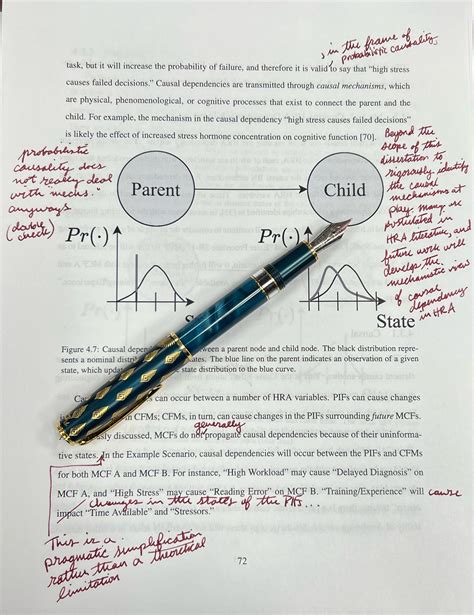 , in the frame of
probabilistic causality,
task, but it will increase the probability of failure, and therefore it is valid to say that “high stress
causes failed decisions.” Causal dependencies are transmitted through causal mechanisms, which
are physical, phenomenological, or cognitive processes that exist to connect the parent and the
child. For example, the mechanism in the causal dependency “high stress causes failed decisions”
is likely the effect of increased stress hormone concentration on cognitive function [70].
probabilistic
causality does
not really deal
with "mechs."
anyways
(double
check)
Beyond the
scope of this
dissertation to
rigorously identify
the causal
mechanisms at
play. many are
postulated in
HRA literature, and
future work will
develop the
mechanistic view
of causal
dependency
in HRA
Parent
Child
Pr(·)
Pr(·)
S
State
Figure 4.7: Causal depen ween a parent node and child node. The black distribution repre-
sents a nominal distrib ates. The blue line on the parent indicates an observation of a given
state, which updat state distribution to the blue curve.
Ca can occur between a number of HRA variables. PIFs can cause changes
in CFMs; CFMs, in turn, can cause changes in the PIFs surrounding future MCFs.
generally
usly discussed, MCFs do not propagate causal dependencies because of their uninforma-
tive states. In the Example Scenario, causal dependencies will occur between the PIFs and CFMs
for both MCF A and MCF B. For instance, “High Workload” may cause “Delayed Diagnosis” on
MCF A, and “High Stress” may cause “Reading Error” on MCF B. “Training/Experience” will cause
changes in the states of the PIFs...
impact “Time Available” and “Stressors.”
This is a
pragmatic simplification
rather than a theoretical
limitation
72